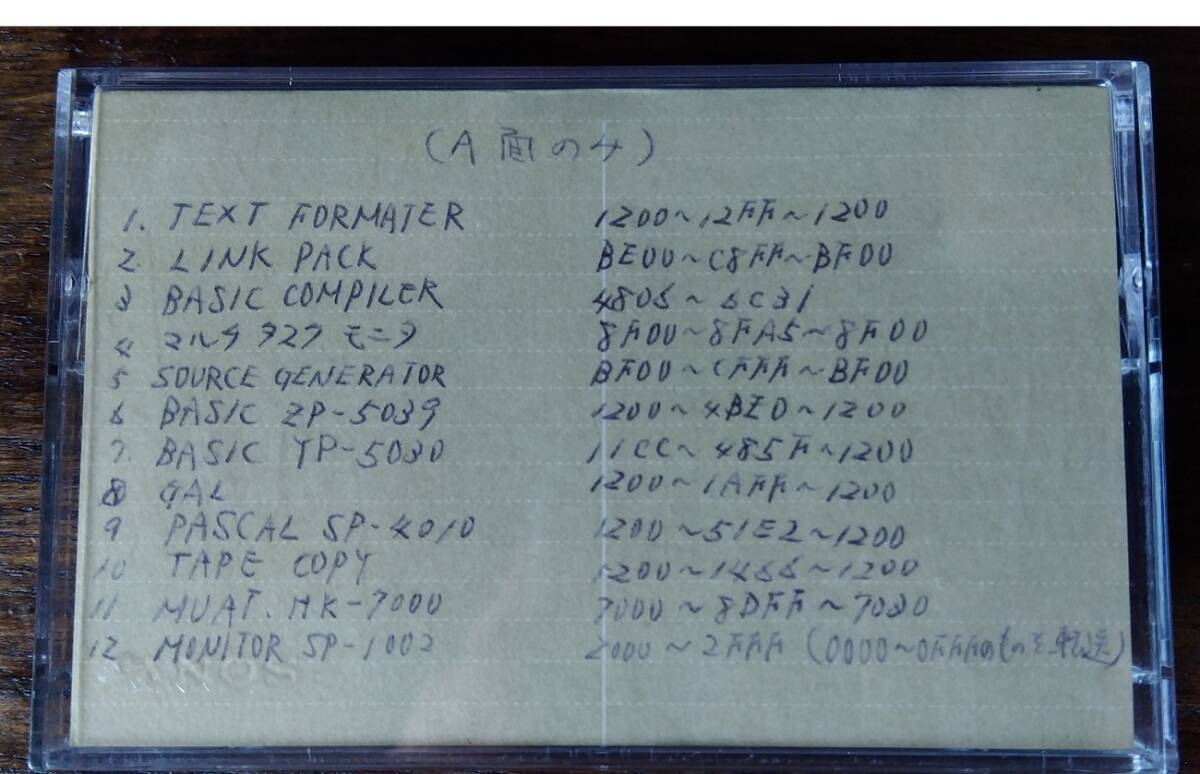 (A面のみ)
1. TEXT FORMATER 1200~12FF~1200
2. LINK PACK BE00~C8FF~BF00
3 BASIC COMPILER 4805~5C31
4 マルチタスク モニタ 8F00~8FA5~8F00
5 SOURCE GENERATOR BF00~CFFF~BF00
6 BASIC ZP-5039 1200~4BE0~1200
7. BASIC YP-5030 11CC~485F~1200
8 GAL 1200~1AFF~1200
9 PASCAL SP-4010 1200~51E2~1200
10 TAPE COPY 1200~1455~1200
11 MUAT. HK-7000 7000~8DFF~7030
12 MONITOR SP-1002 2000~2FFF (0000~0FFFのものを転送)
SONY